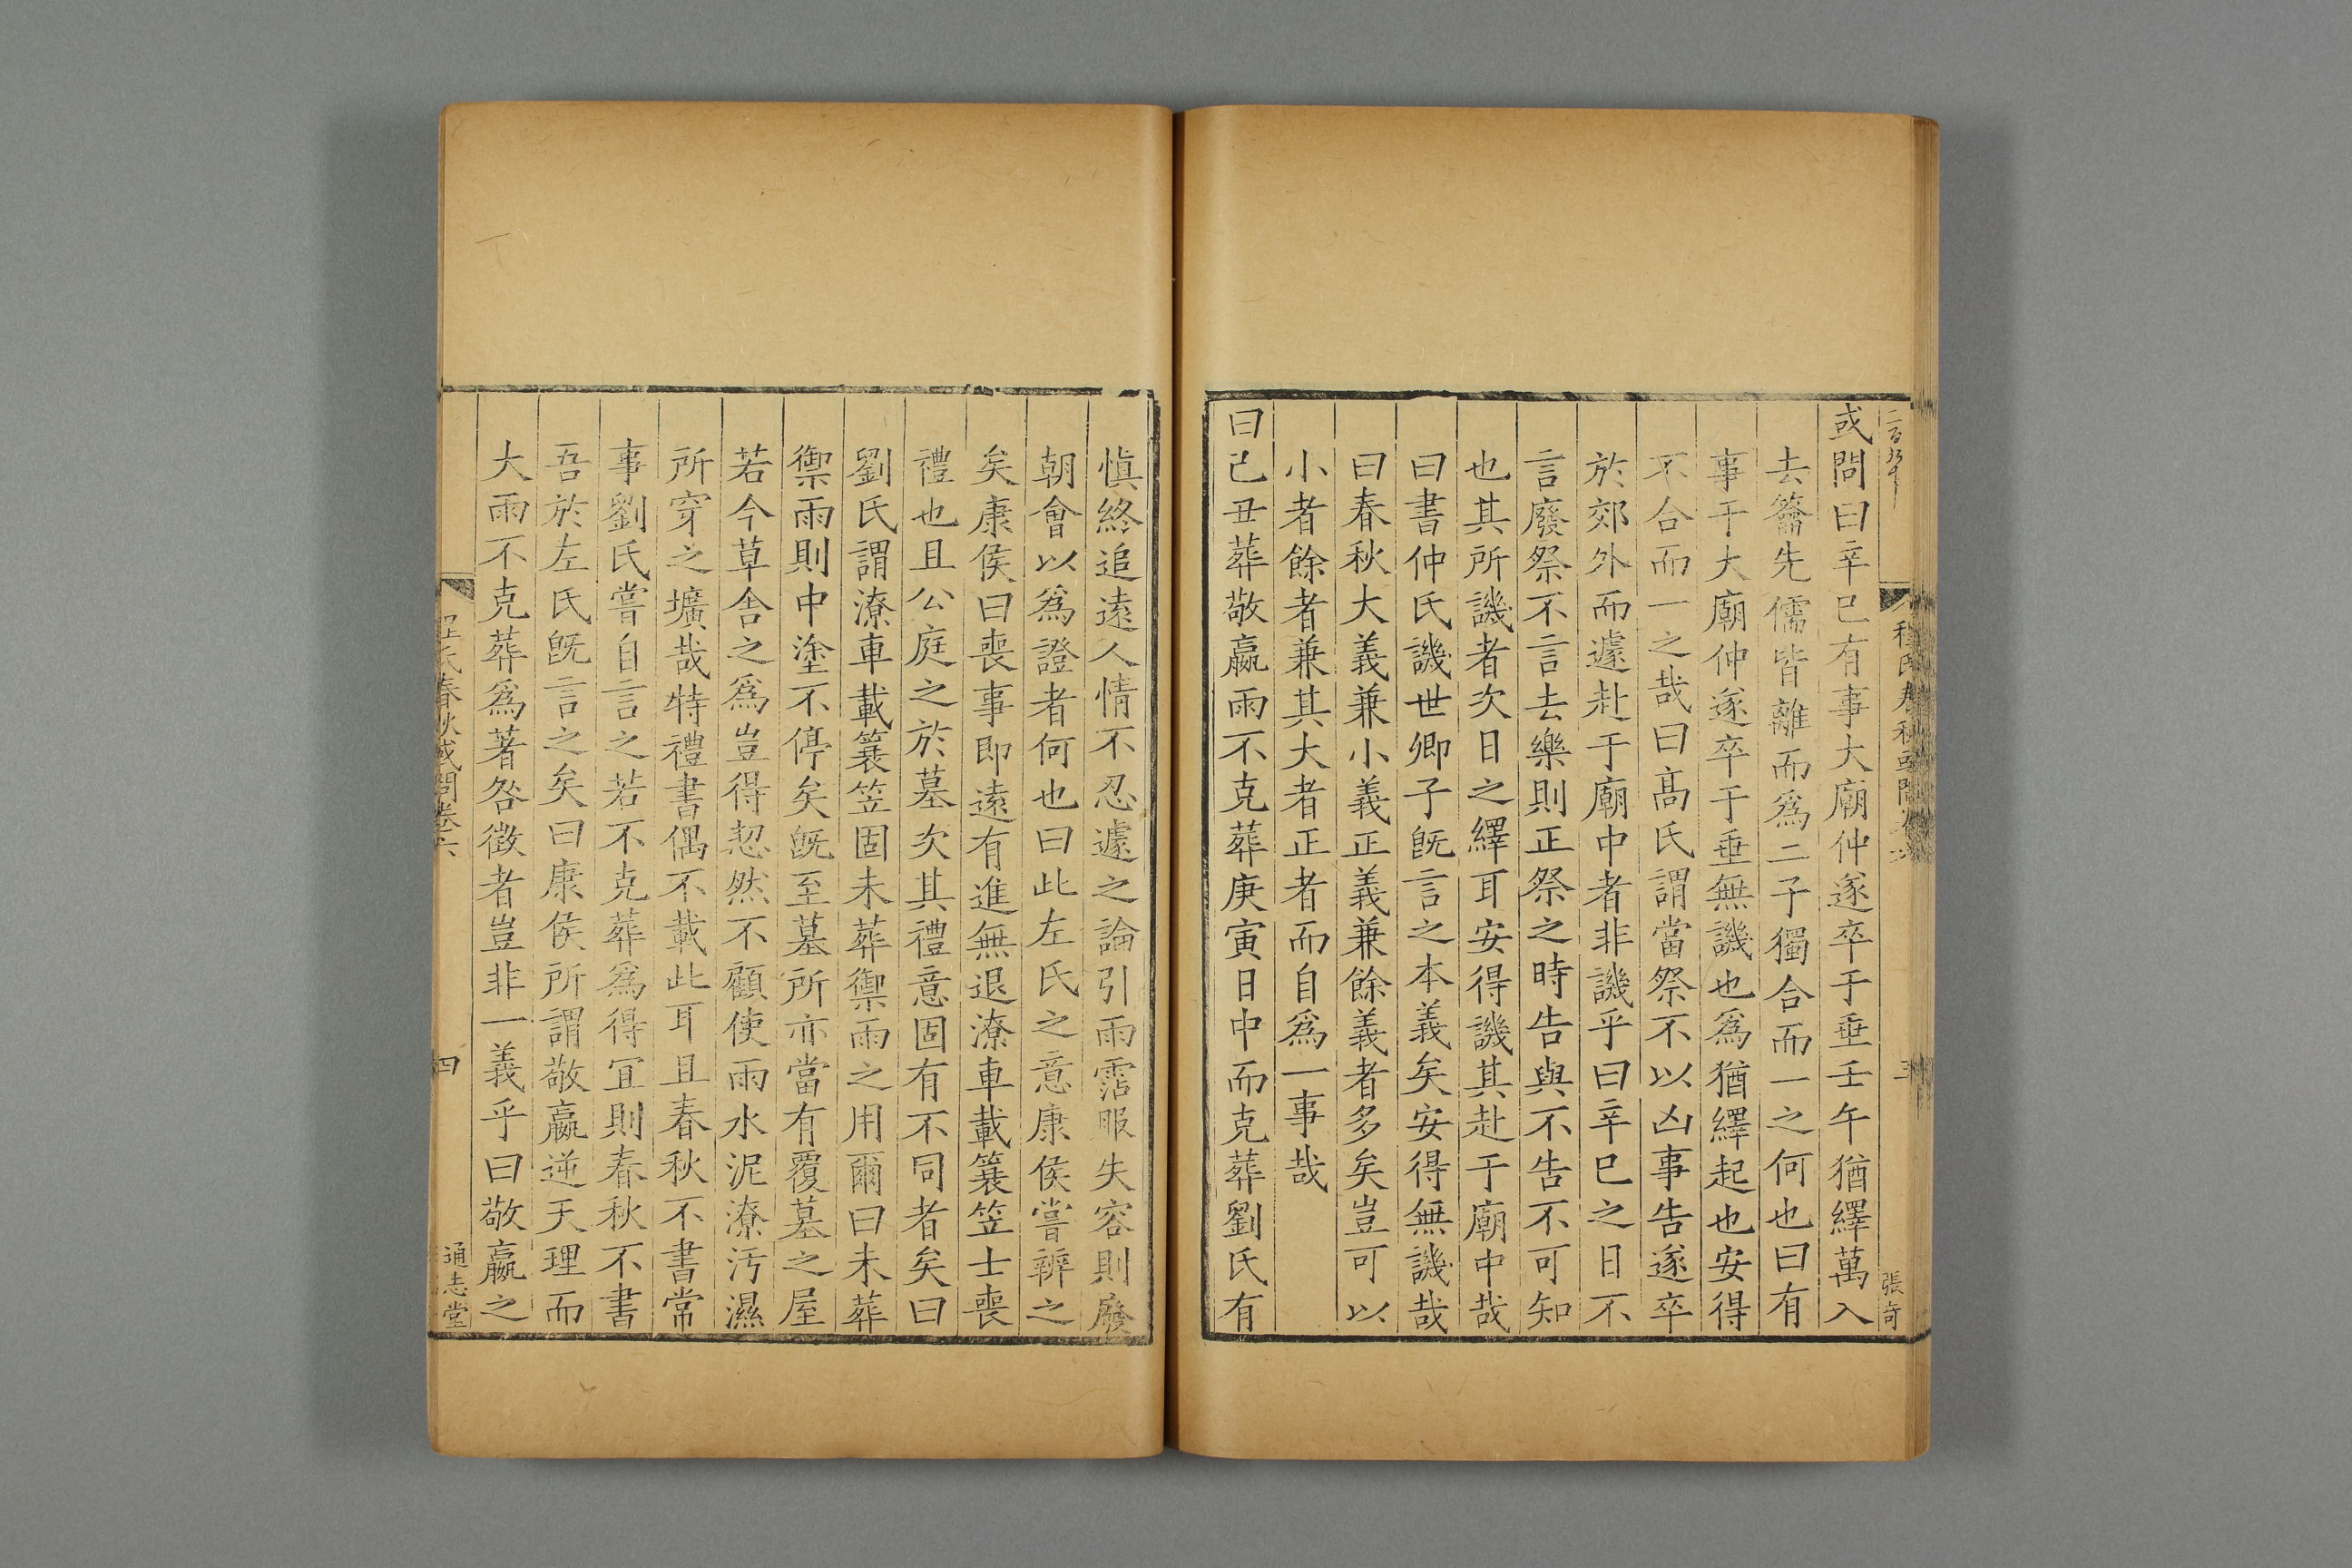 或問曰辛巳有事大廟仲遂卒于垂壬午猶繹萬入
去籥先儒皆離而爲二子獨合而一之何也曰有
事于大廟仲遂卒于垂無譏也爲猶繹起也安得
不合而一之哉曰髙氏謂當祭不以凶事告遂卒
於郊外而遽赴于廟中者非譏乎曰辛巳之日不
言廢祭不言去樂則正祭之時告與不告不可知
也其所譏者次日之繹耳安得譏其赴于廟中哉
曰書仲氏譏世卿子旣言之本義矣安得無譏哉
曰春秋大義兼小義正義兼餘義者多矣豈可以
小者餘者兼其大者正者而自爲一事哉
曰己丑葬敬嬴雨不克葬庚寅日中而克葬劉氏有
張奇
愼終追遠人情不忍遽之論引雨霑服失容則廢
朝會以爲證者何也曰此左氏之意康侯嘗辨之
矣康侯曰喪事即遠有進無退潦車載簑笠士喪
禮也且公庭之於墓次其禮意固有不同者矣曰
劉氏謂潦車載簑笠固未葬禦雨之用爾曰未葬
禦雨則中塗不停矣旣至墓所亦當有覆墓之屋
若今草舎之爲豈得恝然不顧使雨水泥潦汚濕
所穿之壙哉特禮書偶不載此耳且春秋不書常
事劉氏嘗自言之若不克葬爲得宜則春秋不書
吾於左氏旣言之矣曰康侯所謂敬嬴逆天理而
大雨不克葬爲著咎徵者豈非一義乎曰敬嬴之
程氏春秋或問卷六
四
通志堂